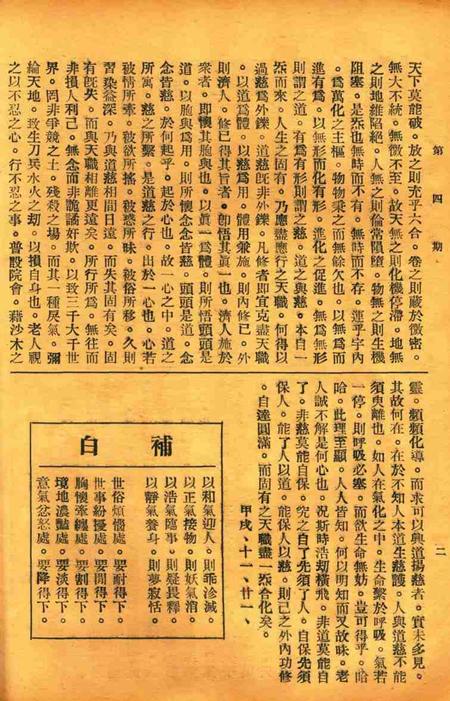 第四期
二
天下莫能破。放之則充乎六合。卷之則藏於微密。
無大不統。無微不至。故天無之則化機停滯。地無
之則地維陷絕。人無之則倫常隕墮。物無之則生機
阻塞。是炁也無時而不有。無時而不存。蓮乎宇內
。為萬化之主樞。物物秉之而無餘欠也。以無為而
進有為。以無形而化有形。進化之促進。無為無形
則謂之道。有為有形則謂之慈。道之與慈。本自一
炁而來。人生之固有。乃應盡應行之天職。何得以
過慈為外鑠。道慈既非外鑠。凡修者即宜克盡天職
。以道為體。以慈為用。體用兼施。則內修已。外
則濟人。修已得其旨者。即悟其真一也。濟人施於
衆者。即懷其胞與也。以真一為體。則所悟頭頭是
道。以胞與為用。則所懷念念皆慈。頭頭是道。念
念皆慈。於何起乎。起於心也。故一心之中。道之
所寓。慈之所繫。是道慈之行。出於一心也。心若
被情所牽。被欲所搖。被惑所昧。被俗所移。久則
習染益深。乃與道慈相間日遠。而失其固有矣。固
有旣失。而與天職相離更遠矣。所行所為。無往而
非損人利己。無念而非詭譎奸欺。以致三千大千世
界。罔非爭競之土。殘殺之場。而其一種戾氣。彌
綸天地。致生刀兵水火之劫。以損自身也。老人視
之以不忍之心。行不忍之事。普設院會。藉沙木之
靈。頻頻化導。而求可以與道揚慈者。實未多見。
其故何在。在於不知人本道生慈護。人與道慈不能
須臾離也。如人在氣化之中。生命繫於呼吸。氣若
一停。則呼吸必塞。而欲生命無妨。豈可得乎。哈
哈。此理至顯。人人皆知。何以明知而又故昧。老
人誠不解是何心也。况斯時浩劫橫飛。非道莫能自
了。非慈莫能自保。究之自了先須了人。自保先須
保人。能了人以道。能保人以慈。則己之外內功修
。自達圓滿。而固有之天職盡一炁合化矣。
甲戌、十一、廿一、
補白
以和氣迎人。則乖沴滅。
以正氣接物。則妖氣消。
以浩氣臨事。則疑畏釋。
以靜氣養身。則夢寂恬。
世俗煩惱處。要耐得下。
世事紛擾處。要閒得下。
胸懷牽纏處。要割得下。
境地濃豔處。要淡得下。
意氣忿怒處。要降得下。